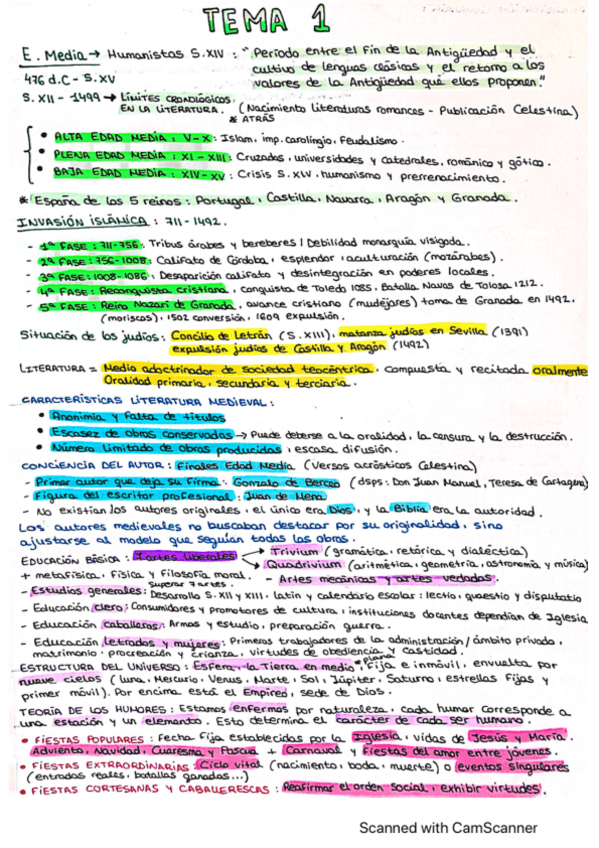 TEMA 1
E. Media → Humanistas S.XIV : "Período entre el fin de la Antigüedad y el
cultivo de lenguas clásicas y el retorno a los
476 d.C - S.XV
valores de la Antigüedad que ellos proponen."
S. XII - 1499 → LÍMITES CRONOLÓGICOS EN LA LITERATURA. (Nacimiento literaturas romances - Publicación Celestina)
* ATRÁS
• ALTA EDAD MEDIA : V-X : Islam, imp. carolingio, feudalismo.
• PLENA EDAD MEDIA : XI - XIII : Cruzadas, universidades y catedrales, románico y gótico.
• BAJA EDAD MEDIA : XIV-XV : Crisis S. XIV, humanismo y prerrenacimiento.
* España de los 5 reinos : Portugal, Castilla, Navarra, Aragón y Granada.
INVASIÓN ISLÁMICA : 711-1492.
- 1ª FASE : 711-756 : Tribus árabes y bereberes / Debilidad monarquía visigoda.
- 2ª FASE : 756-1008 : Califato de Córdoba, esplendor, aculturación (mozárabes).
- 3ª FASE : 1008-1086 : Desaparición califato y desintegración en poderes locales.
- 4ª FASE : Reconquista cristiana, conquista de Toledo 1085, Batalla Navas de Tolosa 1212.
- 5ª FASE : Reino Nazarí de Granada, avance cristiano (mudéjares) toma de Granada en 1492.
(moriscos), 1502 conversión, 1609 expulsión.
Situación de los judíos : Concilio de Letrán (S.XIII), matanza judíos en Sevilla (1391)
expulsión judíos de Castilla y Aragón (1492)
LITERATURA = Medio adoctrinador de sociedad teocéntrica, compuesta y recitada oralmente
Oralidad primaria, secundaria y terciaria.
CARACTERÍSTICAS LITERATURA MEDIEVAL :
• Anonimia y falta de títulos
• Escasez de obras conservadas → Puede deberse a la oralidad, la censura y la destrucción.
• Número limitado de obras producidas, escasa difusión.
CONCIENCIA DEL AUTOR : Finales Edad Media (Versos acrósticos Celestina)
- Primer autor que deja su firma : Gonzalo de Berceo (dsps: Don Juan Manuel, Teresa de Cartagena)
- Figura del escritor profesional : Juan de Mena
- No existían los autores originales, el único era Dios, y la Biblia era la autoridad.
Los autores medievales no buscaban destacar por su originalidad, sino
ajustarse al modelo que seguían todas las obras.
EDUCACIÓN BÁSICA : 7 artes liberales → Trivium (gramática, retórica y dialéctica)
→ Quadrivium (aritmética, geometría, astronomía y música)
+ metafísica, física y filosofía moral. - Artes mecánicas y artes vedadas.
superar 7 artes
- Estudios generales : Desarrollo S. XII y XIII, latín y calendario escolar : lectio, quaestio y disputatio
- Educación clero : Consumidores y promotores de cultura, instituciones docentes dependían de Iglesia
- Educación caballeros : Armas y estudio, preparación guerra.
- Educación letrados y mujeres : Primeros trabajadores de la administración / ámbito privado,
matrimonio, procreación y crianza, virtudes de obediencia y castidad.
ESTRUCTURA DEL UNIVERSO : Esfera, la Tierra en medio, fija e inmóvil, envuelta por
nueve cielos (luna, Mercurio, Venus, Marte, Sol, Júpiter, Saturno, estrellas fijas y
primer móvil). Por encima está el Empíreo, sede de Dios.
TEORÍA DE LOS HUMORES : Estamos enfermos por naturaleza, cada humor corresponde a
una estación y un elemento. Esto determina el carácter de cada ser humano.
• FIESTAS POPULARES : Fecha fija establecidas por la Iglesia, vidas de Jesús y María.
Adviento, Navidad, Cuaresma y Pascua + Carnaval y fiestas del amor entre jóvenes.
• FIESTAS EXTRAORDINARIAS : Ciclo vital (nacimiento, boda, muerte) o eventos singulares
(entradas reales, batallas ganadas...)
• FIESTAS CORTESANAS Y CABALLERESCAS : Reafirmar el orden social, exhibir virtudes.
Scanned with CamScanner